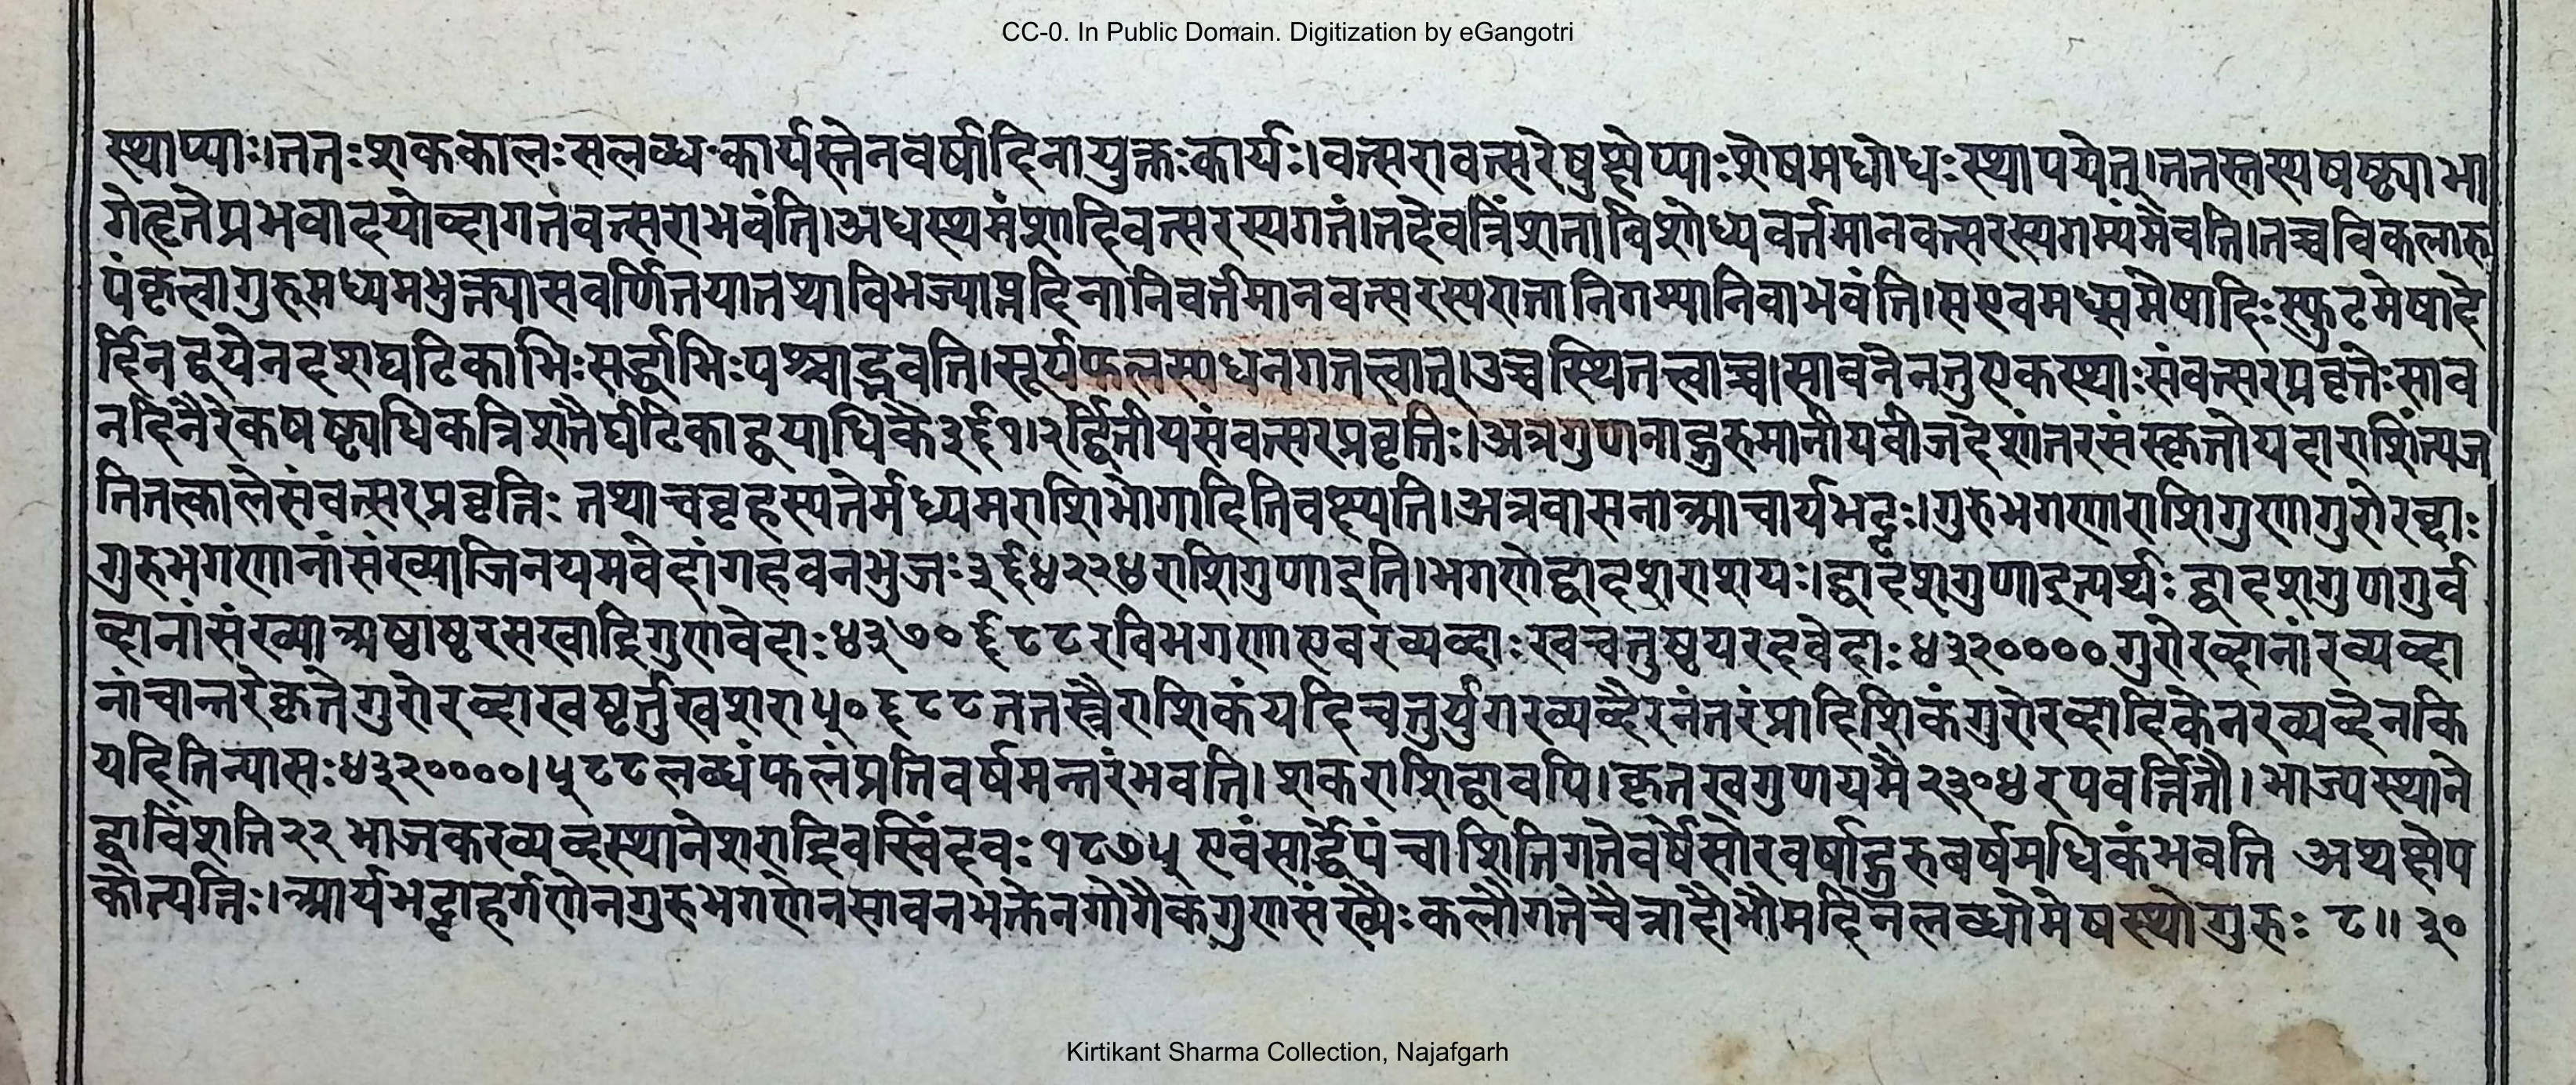 CC-0. In Public Domain. Digitization by eGangotri
स्थाप्याः।ततःशककालःसलब्धःकार्यस्तेनवर्षादिनायुक्तःकार्यः।वत्सरावत्सरेषुक्षेप्याःशेषमधोधःस्थापयेत्।ततस्तस्यषष्ट्याभा
गेहृतेप्रभवादयोब्दागतंवत्सराभवंति।अधस्थमंशादिवत्सरस्यगतं।तदेवत्रिंशताविशोध्यवर्त्तमानवत्सरस्यगम्यंमेवति।तच्चविकलारु
पंकृत्वागुरुमध्यमभुक्त्यासवर्णितयातयाविभज्याप्तदिनानिवर्तमानवत्सरस्यगतानिगम्यानिवाभवंति।सएवमध्यममेषादिःस्फुटमेषादे
र्दिनद्वयेनदशघटिकाभिःसर्द्धाभिःपश्चाद्भवति।सूर्यफलस्यधनगतत्वात्।उच्चस्थितत्वाच्च।सावनेनतुएकस्थाःसंवत्सरप्रवृत्तेःसाव
नदिनैरेकषष्ट्यधिकत्रिशतैर्घटिकाद्वयाधिकै३६१।२र्द्वितीयसंवत्सरप्रवृत्तिः।अत्रगुणनाद्गुरुमानीयवीजदेशांतरसंस्कृतोयदाराशिंत्यज
तितत्कालेसंवत्सरप्रवृत्तिः तथाचवृहस्पतेर्मध्यमराशिभोगादितिवक्ष्यति।अत्रवासनाआचार्यभट्टः।गुरुभगणाराशिगुणागुरोरब्दाः
गुरुभगणानांसंख्याजिनयमवेदांगहवनभुजः३६४२२४राशिगुणाइति।भगणोद्वादशराशयः।द्वादशगुणाइत्यर्थः द्वादशगुणगुर्व
ब्दानांसंख्याअष्टाष्टरसखाद्रिगुणवेदाः४३७०६८८रविभगणाएवरव्यब्दाः खचतुष्टयरदवेदाः४३२००००गुरोरब्दानांरव्यब्दा
नांचान्तरेकृतेगुरोरब्दाखषर्तुखशरा५०६८८ततस्त्रैराशिकंयदिचतुर्युगरव्यब्दैरनंतरंप्राहिशिकंगुरोरब्दादिकेनरव्यब्देनकि
यदितिन्यासः४३२००००।५८८लब्धंफलंप्रतिवर्षमन्तरंभवति।शकराशिद्वावपि।कृतखगुणयमै२३०४रपवर्त्तितौ।भाज्यस्थाने
द्वाविंशति२२भाजकरव्यब्दस्थानेशराद्रिवस्विंदवः१८७५एवंसार्द्धेपंचाशितिगतेवर्षेसौरवर्षाद्गुरुबर्षमधिकंभवति अथक्षेप
कोत्पत्तिः।आर्यभट्टाहर्गणेनगुरुभगणेनसावनभक्तेनगोगैकगुणसंख्यैःकलौगतेचैत्रादौभौमदिनेलब्धोमेषस्थोगुरुः ८॥३०
Kirtikant Sharma Collection, Najafgarh